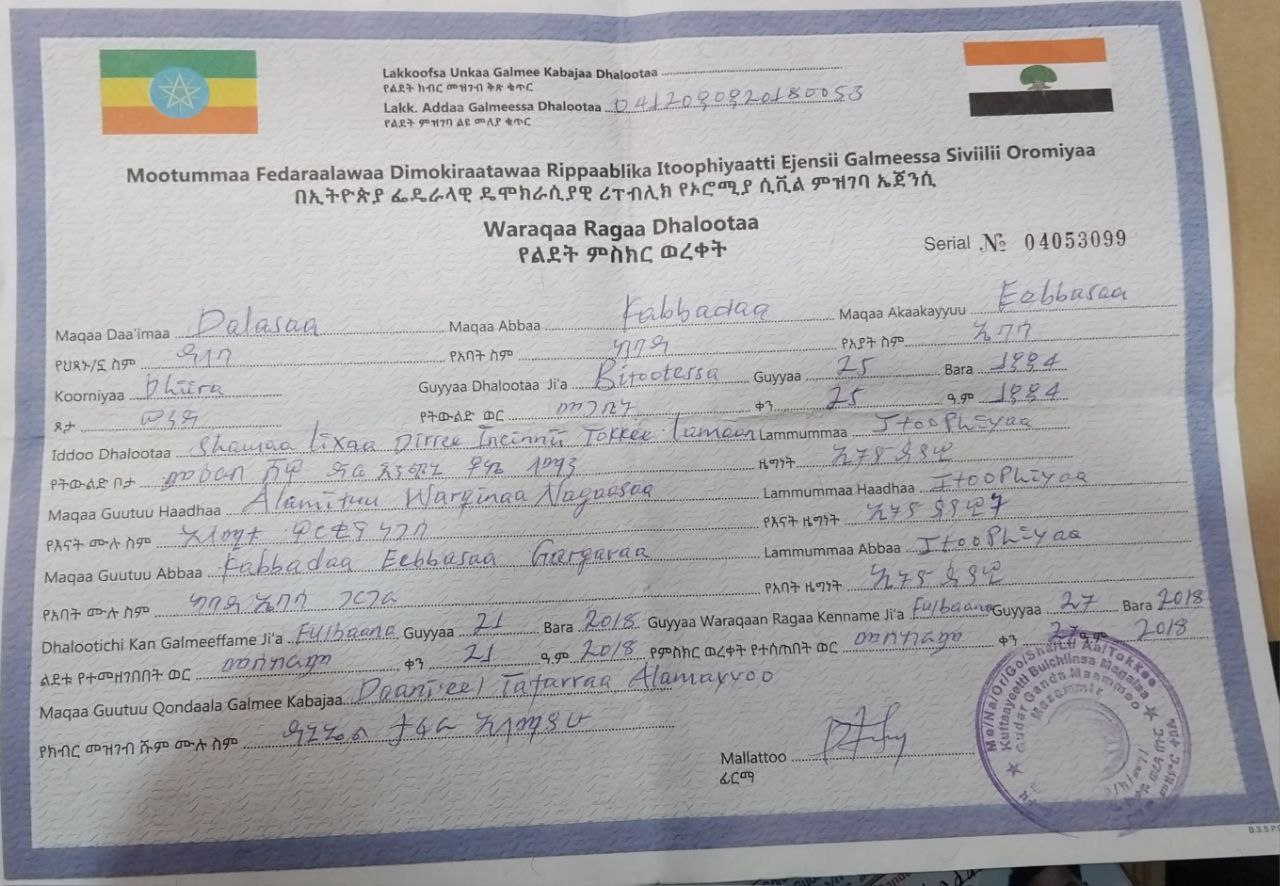 Lakkoofsa Unkaa Galmee Kabajaa Dhalootaa
የልደት ክብር መዝገብ ቅጽ ቁጥር
Lakk. Addaa Galmeessa Dhalootaa
የልደት ምዝገባ ልዩ መለያ ቁጥር
Mootummaa Fedaraalawaa Dimokiraatawaa Rippaablika Itoophiyaatti Ejensii Galmeessa Siviilii Oromiyaa
በኢትዮጵያ ፌዴራላዊ ዴሞክራሲያዊ ሪፐብሊክ የኦሮሚያ ሲቪል ምዝገባ ኤጀንሲ
Waraqaa Ragaa Dhalootaa
የልደት ምስክር ወረቀት
Serial № 04053099
Maqaa Daa'imaa Dalasaa Maqaa Abbaa Kabbadaa Maqaa Akaakayyuu Eebbasaa
የህጻኑ/ኗ ስም ዳላሳ የአባት ስም ካባዳ የአያት ስም ኤባሳ
Koorniyaa Dhiira Guyyaa Dhalootaa Ji'a Bitootessa Guyyaa 25 Bara 1994
ጾታ ወንድ የትውልድ ወር መጋቢት ቀን 25 ዓ.ም 1994
Iddoo Dhalootaa Shawaa Lixaa Dirree Incinnii Tokkee Lammummaa ItooPhiyaa
የትውልድ ቦታ ምዕራብ ሸዋ ዜግነት ኢትዮጵያዊ
Maqaa Guutuu Haadhaa Alamituu Warqinaa Nagaasaa Lammummaa Haadhaa ItooPhiyaa
የእናት ሙሉ ስም ነጋሳ የእናት ዜግነት ኢትዮጵያዊት
Maqaa Guutuu Abbaa Kabbadaa Eebbasaa Gargaraa Lammummaa Abbaa ItooPhiyaa
የአባት ሙሉ ስም ካባዳ ኤባሳ ጋርጋራ የአባት ዜግነት ኢትዮጵያዊ
Dhalootichi Kan Galmeeffame Ji'a Fulbaana Guyyaa 21 Bara 2018 Guyyaa Waraqaan Ragaa Kenname Ji'a Fulbaana Guyyaa 27 Bara 2018
ልደቱ የተመዘገበበት ወር መስከረም ቀን 21 ዓ.ም 2018 የምስክር ወረቀት የተሰጠበት ወር መስከረም ቀን 27 ዓ.ም 2018
Maqaa Guutuu Qondaala Galmee Kabajaa Daani'eel Tafarraa Alamayyoo
የክብር መዝገብ ሹም ሙሉ ስም ዳኒኤል ታፋራ አለማዮሁ
Mallattoo
ፊርማ